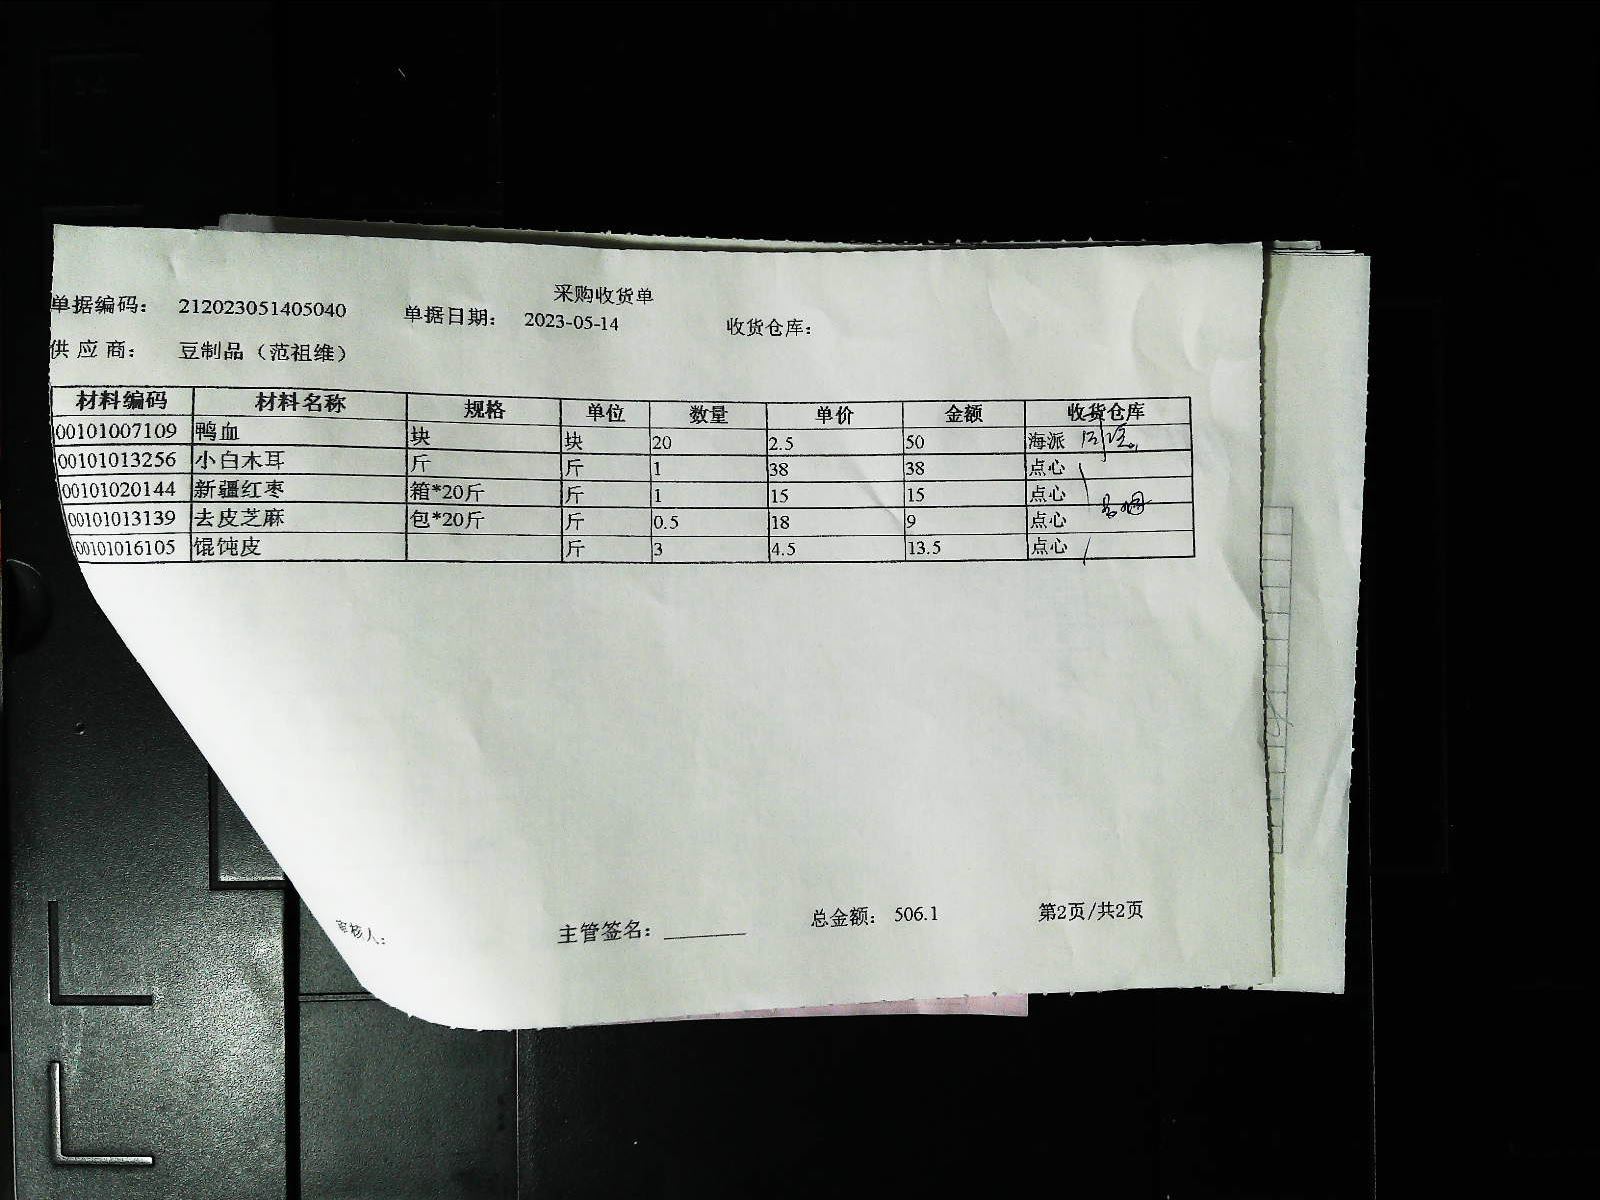 采购收货单
单据编码： 212023051405040 单据日期： 2023-05-14 收货仓库：
供应商： 豆制品（范祖维）
材料编码 材料名称 规格 单位 数量 单价 金额 收货仓库
00101007109 鸭血 块 块 20 2.5 50 海派
00101013256 小白木耳 斤 斤 1 38 38 点心
00101020144 新疆红枣 箱*20斤 斤 1 15 15 点心
00101013139 去皮芝麻 包*20斤 斤 0.5 18 9 点心
00101016105 馄饨皮 斤 3 4.5 13.5 点心
审核人： 主管签名： 总金额： 506.1 第2页/共2页